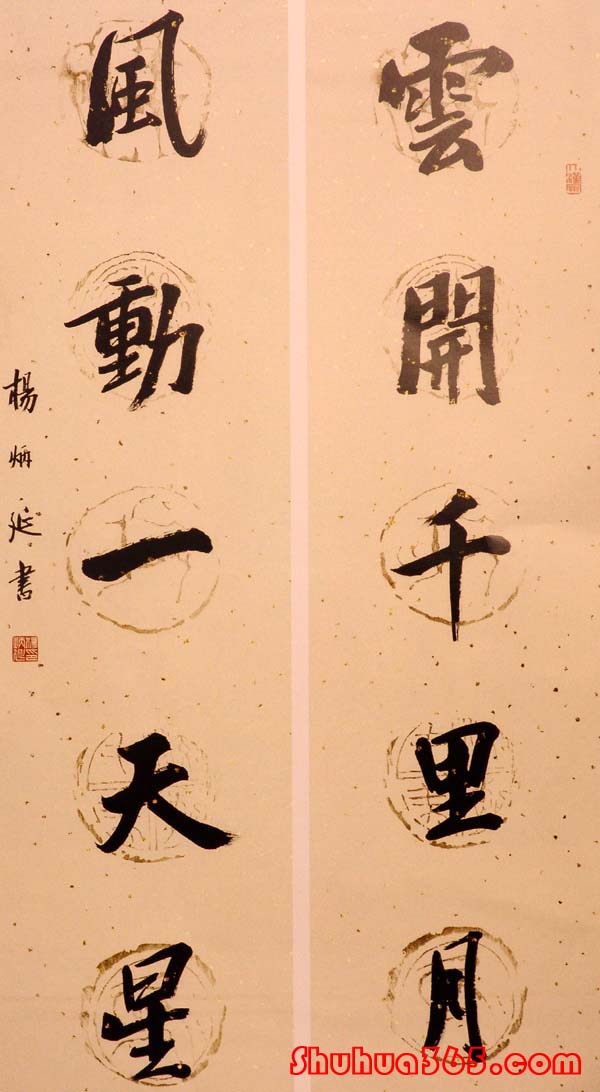 雲開千里月
風動一天星
楊炳延書
Shuhua365.com